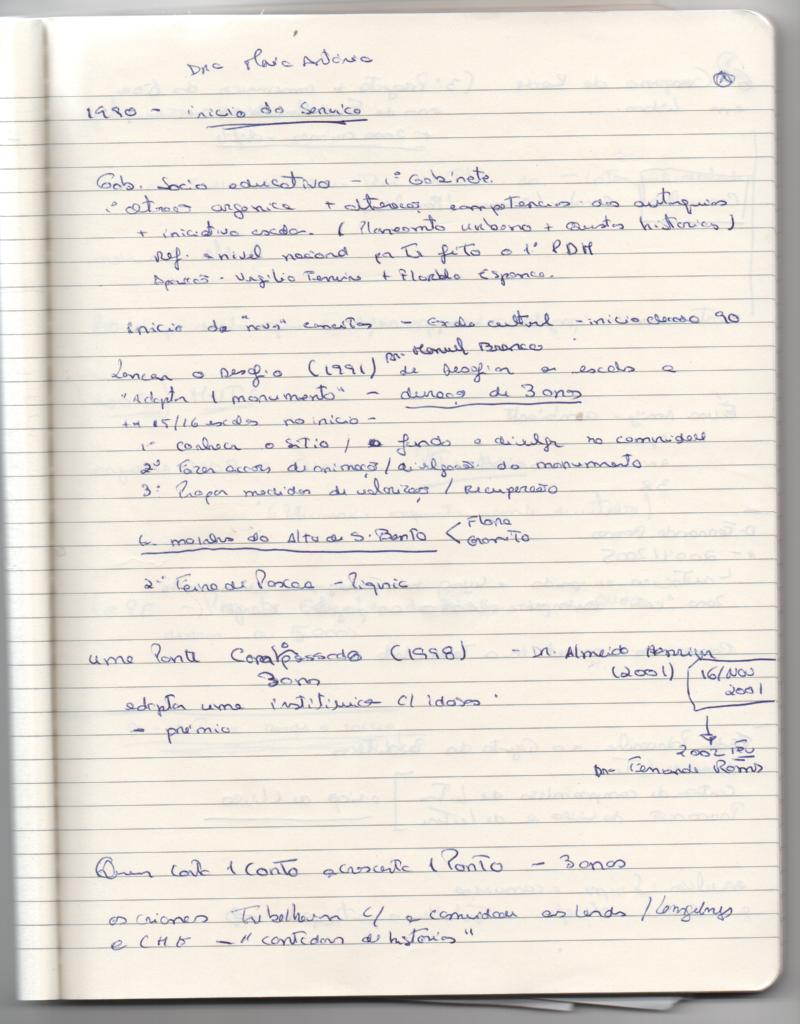 Dra Maria António
A
1980 - inicio do Serviço
Gab. Socio educativo - 1º Gabinete.
organica + alterações competencias das autarquias
+ iniciativa escolar. (Planeamento urbano + Questões históricas)
Ref. a nivel nacional feito o 1º PDM
Vergilio Ferreira + Florbela Espanca.
inicio de "novos" conceitos - cultural - inicio decada 90
Dr. Manuel Branco
Lançar o Desafio (1991) de Desafiar as escolas a
"Adopta 1 monumento" - duração de 3 anos
++ 15/16 escolas no inicio -
1º conhecer o sitio / a fundo e divulgar na comunidade
2º Fazer acções de animação / divulgação do monumento
3º Propor medidas de valorização / recuperação
moinhos do Alto de S. Bento < Flora
Granito
2ª Feira de Pascoa - Piquenic
uma Ponte Com o passado (1998) - Dr. Almeida Henriques
3 anos (2001) 16/Nov
2001
adopta uma instituição c/ idosos.
- prémio
2002 Fev
Dra Fernanda Ramos
Quem conta 1 Conto acrescenta 1 Ponto - 3 anos
as crianças Trabalhavam c/ a comunidade as lendas /
e CME - "contadores de histórias"